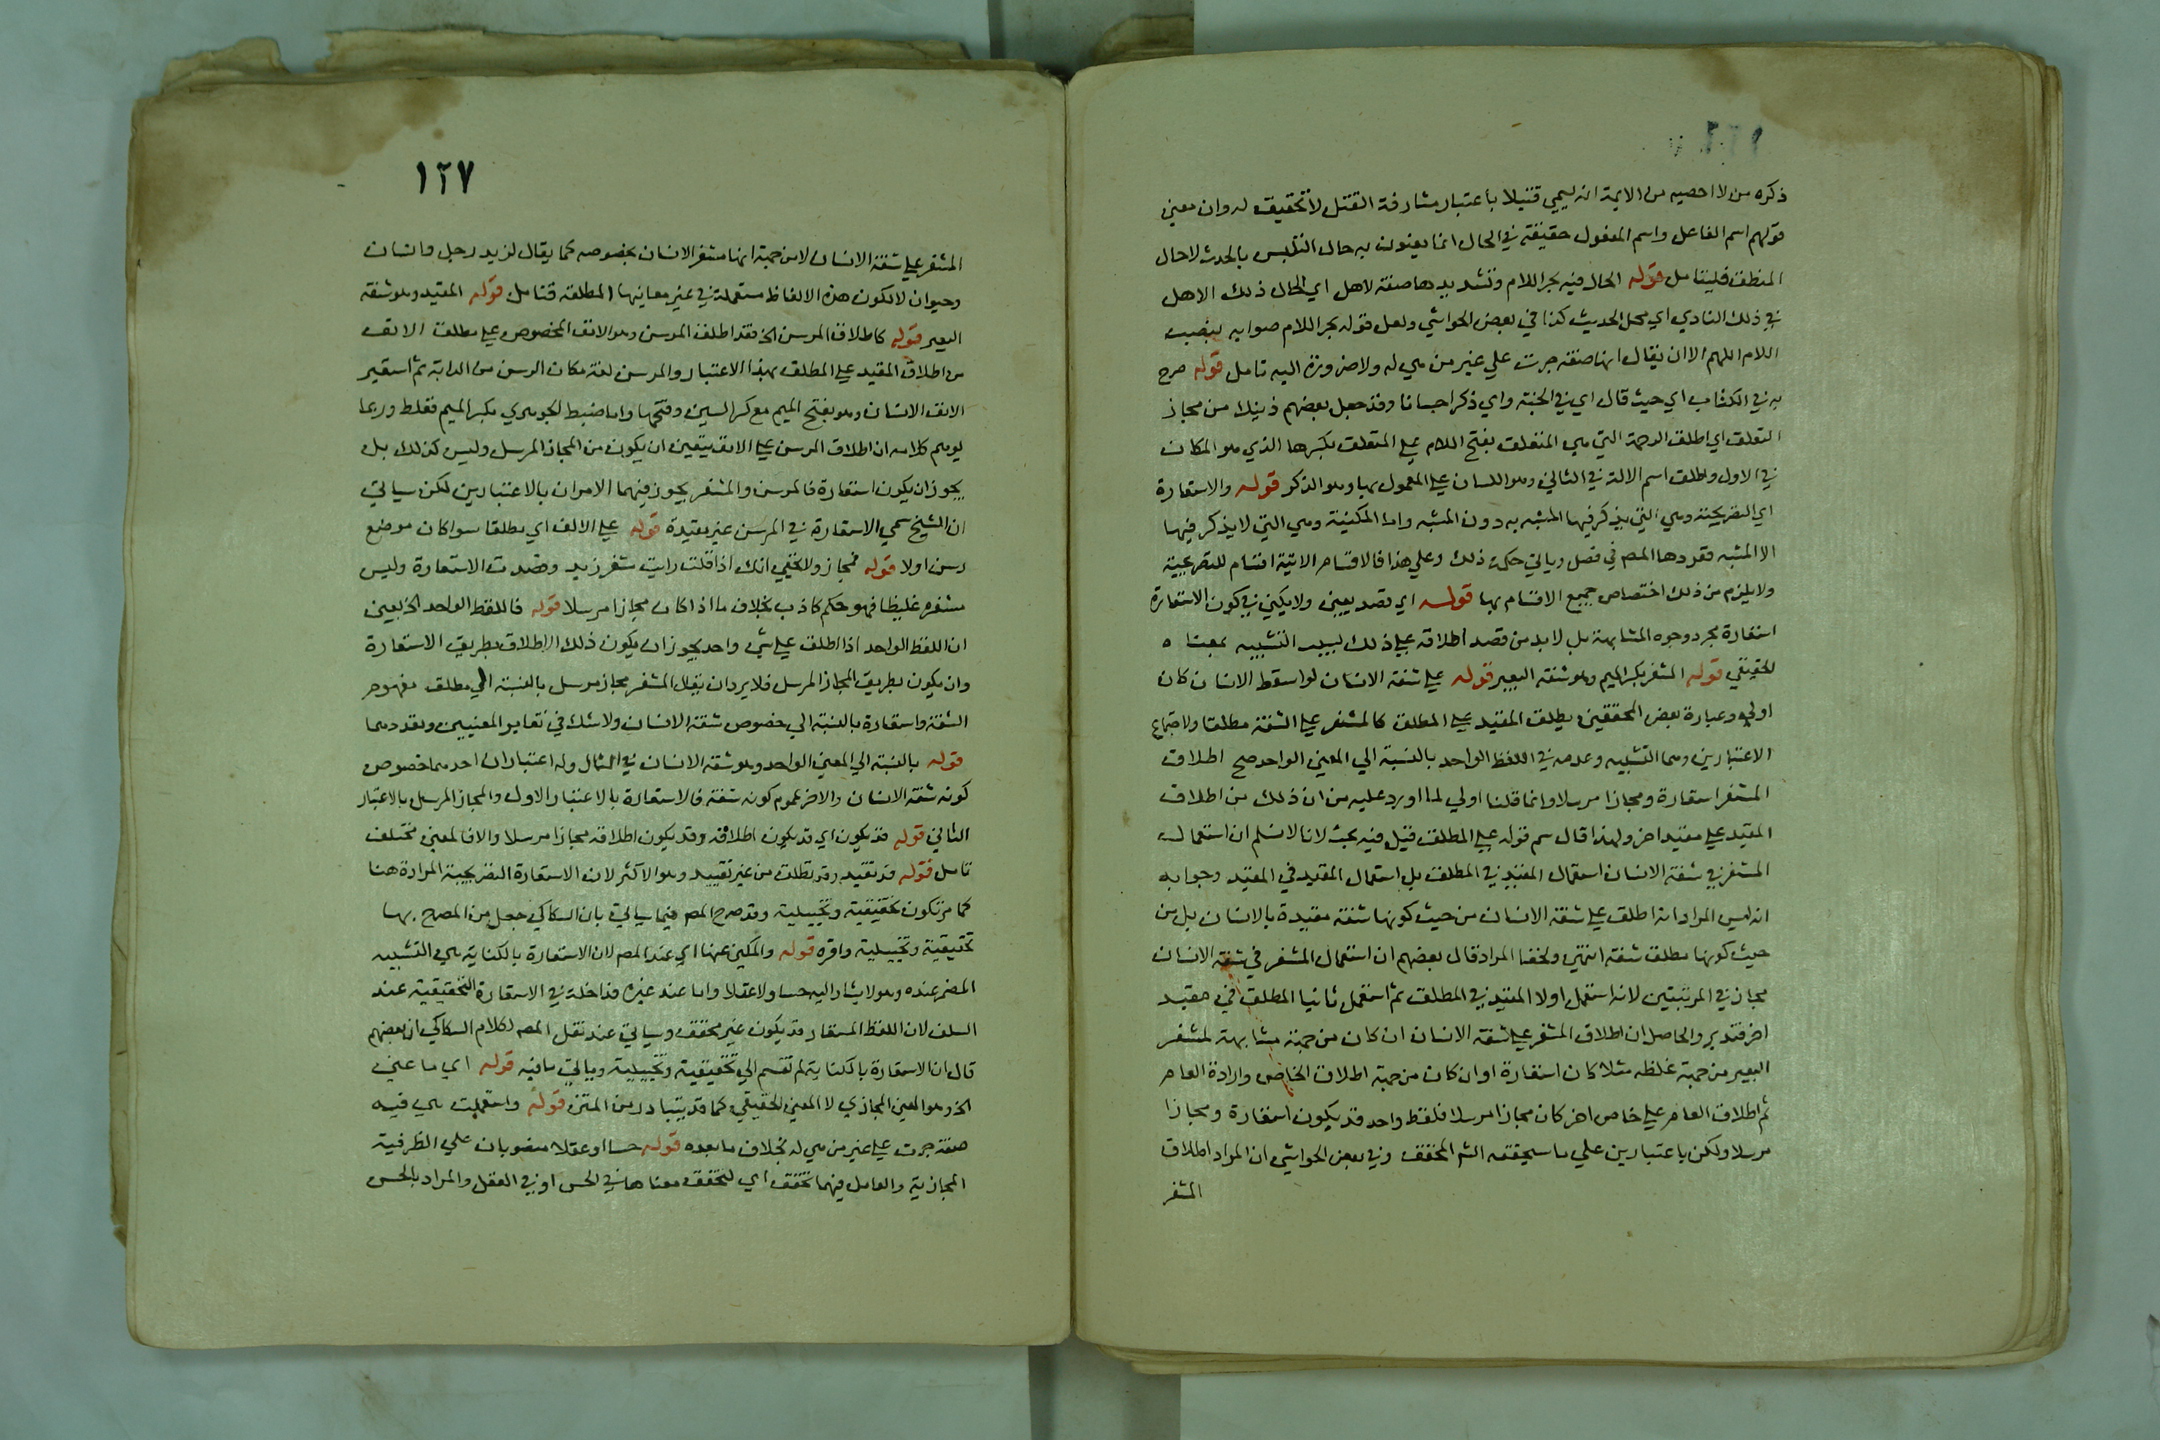 ذكره من لا احصيه من الايمة انه يسمي قتيلا باعتبار مشارفة القتل لا تحقيقه له وان معني
قولهم اسم الفاعل واسم المفعول حقيقة في الحال انما يعنون به حال التلبس بالحدث لا حال
المنطق فليتامل قوله الحال فيه بجر اللام وتشديدها صفة لاهل اي الحال ذلك الاهل
في ذلك النادي اي محل الحديث كذا في بعض الحواشي ولعل قوله بجر اللام صوابه بنصب
اللام اللهم الا ان يقال انها صفة جرت علي غير من هي له ولا ضرورة اليه تامل قوله صرح
به في الكشاف اي حيث قال اي في الجنة واي ذكرا حسانا وقد جعل بعضهم ذينك من مجاز
التعلق اي اطلق الرحمة التي هي المتعلق بفتح اللام علي المتعلق بكسرها الذي هو المكان
في الاول واطلق اسم الالة في الثاني وهو اللسان علي المعمول بها وهو الذكر قوله والاستعارة
اي التصريحية وهي التي يذكر فيها المشبه به دون المشبه واما المكنية وهي التي لا يذكر فيها
الا المشبه فقردها المصر في فصل وياتي حكمة ذلك وعلي هذا فالاقسام الاتية اقسام للتصريحية
ولا يلزم من ذلك اختصاص جميع الاقسام بها قوله اي قصد يعني ولا يكفي في كون الاستعارة
استعارة مجرد وجوه المشابهة بل لا بد من قصد اطلاقه علي ذلك بسبب التشبيه بمعناه
الحقيقي قوله المشفر بكسر الميم وهو شفة البعير قوله علي شفة الانسان لو اسقط الانسان كان
اولي وعبارة بعض المحققين يطلق المقيد علي المطلق كالمشفر علي الشفة مطلقا ولاجتماع
الاعتبارين وهما التشبيه وعدمه في اللفظ الواحد بالنسبة الي المعني الواحد صح اطلاق
المشفر استعارة ومجازا مرسلا وانما قلنا اولي لما اورد عليه من ان ذلك من اطلاق
المقيد علي مقيد اخر ولهذا قال سم قوله علي المطلق قيل فيه بحث لانا لا نسلم ان استعمال
المشفر في شفة الانسان استعمال المقيد في المطلق بل استعمال المقيد في المقيد وجوابه
انه ليس المراد انه اطلق علي شفة الانسان من حيث كونها شفة مقيدة بالانسان بل من
حيث كونها مطلق شفة انتهي ولخفا المراد قال بعضهم ان استعمال المشفر في شفة الانسان
مجاز في المرتبتين لانه استعمل اولا المقيد في المطلق ثم استعمل ثانيا المطلق في مقيد
اخر فتدبر والحاصل ان اطلاق المشفر علي شفة الانسان ان كان من جهة مشابهة لمشفر
البعير من جهة غلظه مثلا كان استعارة او ان كان من جهة اطلاق الخاص وارادة العام
ثم اطلاق العام علي خاص اخر كان مجازا مرسلا فلفظ واحد قد يكون استعارة ومجازا
مرسلا ولكن باعتبارين علي ما سيحققه الشم المحقق وفي بعض الحواشي ان المراد اطلاق
المشفر
١٢٧
المشفر علي شفة الانسان لا من جهة انها مشفر الانسان بخصوصه كما يقال لزيد رجل وانسان
وحيوان لا تكون هذه الالفاظ مستعملة في غير معانيها المطلقة فتامل قوله المقيد وهو شفة
البعير قوله كاطلاق المرسن الخ فقد اطلق المرسن وهو الانف المخصوص علي مطلق الانف
من اطلاق المقيد علي المطلق بهذا الاعتبار والمرسن لغة مكان الرسن من الدابة ثم استعير
الانف الانسان وهو بفتح الميم مع كسر السين وفتحها واما ضبط الجوهري بكسر الميم فغلط وربما
يوهم كلامه ان اطلاق المرسن علي الانف يتعين ان يكون من المجاز المرسل وليس كذلك بل
يجوز ان يكون استعارة فالمرسن والمشفر يجوز فيهما الامران بالاعتبارين لكن سياتي
ان الشيخ سمي الاستعارة في المرسن غير مفيدة قوله علي الانف اي مطلقا سوا كان موضع
رسن اولا قوله فمجاز ولا يخفي انك اذا قلت رايت مشفر زيد وقصدت الاستعارة وليس
مشفره غليظا فهو حكم كاذب بخلاف ما اذا كان مجازا مرسلا قوله فاللفظ الواحد الخ يعني
ان اللفظ الواحد اذا اطلق علي شي واحد يجوز ان يكون ذلك الاطلاق بطريق الاستعارة
وان يكون بطريق المجاز المرسل فلا يرد ان يقال المشفر مجاز مرسل بالنسبة الي مطلق مفهوم
الشفة واستعارة بالنسبة الي خصوص شفة الانسان ولا شك في تغاير المعنيين وتعددهما
قوله بالنسبة الي المعني الواحد وهو شفة الانسان في المثال وله اعتباران احدهما خصوص
كونه شفة الانسان والاخر عموم كونه شفة فالاستعارة بالاعتبار الاول والمجاز المرسل بالاعتبار
الثاني قوله قد يكون اي قد يكون اطلاقه وقد يكون اطلاقه مجازا مرسلا والا فالمعني مختلف
تامل قوله قد تقيد وقد تطلق من غير تقييد وهو الاكثر لان الاستعارة التصريحية المرادة هنا
كما مر تكون تحقيقية وتخييلية وقد صرح المصر فيما سياتي بان السكاكي جعل من المصرح بها
تحقيقية وتخييلية واقره قوله والمكني عنها اي عند المصر لان الاستعارة بالكناية هي التشبيه
المضمر عنده وهو لا يشار اليه حسا ولا عقلا واما عند غيره فداخلة في الاستعارة التحقيقية عند
السلف لان اللفظ المستعار قد يكون غير محقق وسياتي عند نقل المصر لكلام السكاكي ان بعضهم
قال ان الاستعارة بالكناية لم تقسم الي تحقيقية وتخييلية وياتي ما فيه قوله اي ما عني
الخ وهو المعني المجازي لا المعني الحقيقي كما قد يتبادر من المتن قوله واستعملت هي فيه
صفة جرت علي غير من هي له بخلاف ما بعده قوله حسا او عقلا منصوبان علي الظرفية
المجازية والعامل فيهما تحقق اي لتحقق معناها في الحس او في العقل والمراد بالحس